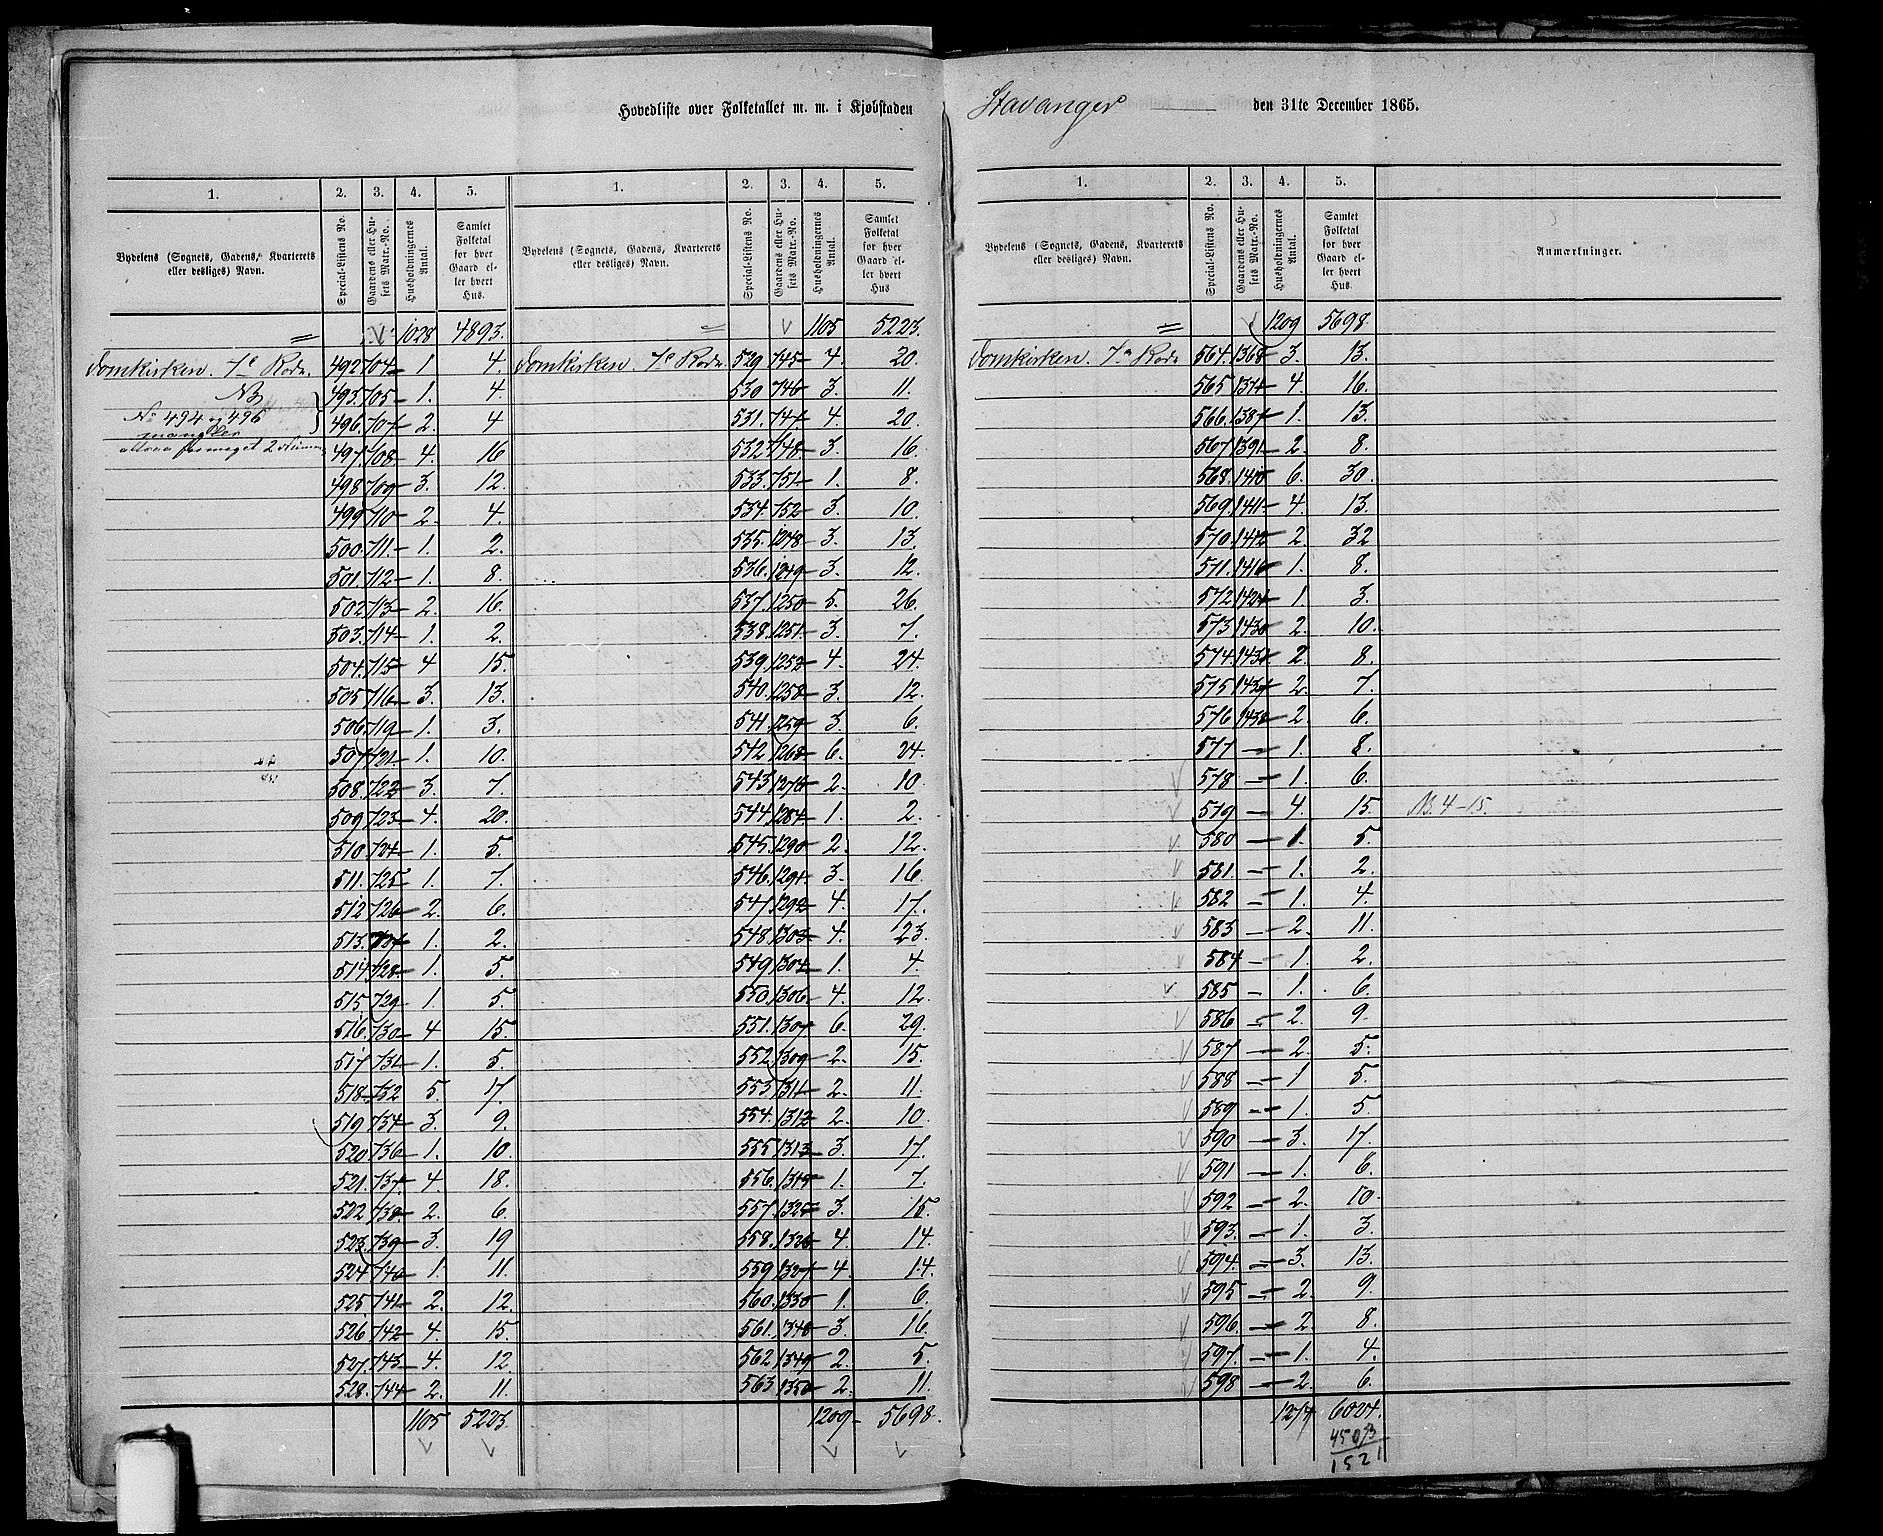 Hovedliste over Folketallet m. m. i Kjøbstaden Stavanger den 31te December 1865.
1. 2. 3. 4. 5. 1. 2. 3. 4. 5.
Bydelens (Sognets, Gadens, Kvarterets eller desliges) Navn.
Special-Listens No.
Gaardens eller Husets Matr.-No.
Husholdningernes Antal.
Samlet Folketal for hver Gaard eller hvert Hus.
Bydelens (Sognets, Gadens, Kvarterets eller desliges) Navn.
Special-Listens No.
Gaardens eller Husets Matr.-No.
Husholdningernes Antal.
Samlet Folketal for hver Gaard eller hvert Hus
= V 1028 4893.
Domkirken. 7e Rode. 492 704 – 1 4.
NB 493. 705 – 1. 4
No 494 og 495 mangler 496. 707 – 2. 4
497. 708 – 4. 16
498 709 – 3. 12.
499 710 – 2. 4.
500. 711. – 1. 2.
501. 712 – 1. 8.
502 713 – 2. 16.
503. 714 – 1. 2.
504. 715 – 4 15.
505 716 – 3. 13.
506. 719 – 1. 3.
507 721 – 1. 10.
508. 722 – 3. 7.
509 723 – 4. 20.
510. 724 – 1. 5.
511. 725 – 1. 7.
512 726 – 2. 6.
513. 727 – 1. 2.
514 728 – 1. 5.
515. 729 – 1. 5
516. 730 – 4 15.
517 731 – 1. 5.
518 – 732 5. 17.
519 734 – 3. 9.
520 736 – 1. 10.
521. 737 – 4. 18.
522 738 – 2. 6.
523. 739 – 3. 19
524 740 – 1. 11.
525. 741 – 2. 12.
526 742 – 4. 15.
527. 743 – 4. 12
528. 744 – 2. 11.
1105 5223.
= V 1105 5223.
Domkirken. 7e Rode. 529 745 – 4. 20.
530 746 – 3. 11.
531. 747 – 4. 20
532 748 – 3. 16.
533. 751 – 1. 8.
534. 752 – 3. 10.
535. 1248 – 3. 13.
536. 1249 – 3. 12.
537. 1250 – 5. 26.
538. 1251 – 3. 7.
539. 1252 – 4. 24.
540. 1258 – 3. 12.
541. 1259 – 3 6.
542 1268 – 6. 24.
543 1276 – 2. 10
544 1284 – 1. 2.
545. 1290 – 2. 12.
546. 1291 – 3. 16.
547 1292 – 4. 17.
548. 1303 – 4. 23.
549 1304 – 1. 4.
550. 1306 – 4. 12.
551. 1307 – 6. 29.
552. 1309 – 2. 15.
553. 1311 – 2. 11.
554. 1312 – 2. 10.
555 1313 – 3. 17.
556. 1319 – 1. 7.
557. 1325 – 3. 15.
558. 1326 – 4. 14.
559 1327 – 4. 14.
560. 1330 – 1. 6.
561. 1348 – 3. 16.
562 1349 – 2. 5.
563. 1350 – 2. 11.
1209 – 5698.
1. 2. 3. 4. 5.
Bydelens (Sognets, Gadens, Kvarterets eller desliges) Navn.
Special-Listens No.
Gaardens eller Husets Matr.-No.
Husholdningernes Antal.
Samlet Folketal for hver Gaard eller hvert Hus.
Anmærkninger.
= V 1209 5698.
Domkirken. 7e Rode 564. 1368 – 3. 13.
565 1374 – 4. 16.
566. 1387 – 1. 13.
567 1391 – 2. 8.
568. 1410 – 6. 30.
569. 1411 – 4. 13.
570. 1412 – 2. 32
571. 1416 – 1. 8.
572 1424 – 1. 3.
573 1430 – 2. 10.
574. 1431 – 2. 8.
575 1437 – 2. 7.
576 1438 – 2. 6.
577 – 1. 8.
578 – 1. 6.
579 – 4. 15. NB. 4 – 15.
580 – 1. 5.
581. – 1. 2.
582 – 1. 4.
583 – 2. 11.
584 – 1. 2.
585 – 1. 6.
586 – 2. 9.
587 – 2. 5.
588 – 1 5.
589 – 1. 5
590 – 3. 17.
591 – 1. 6.
592 – 2. 10.
593. – 1. 3.
594. – 3. 13.
595 – 2. 9.
596. – 2. 8.
597. – 1. 4.
598 – 2. 6.
1274 6024.
4503
1521